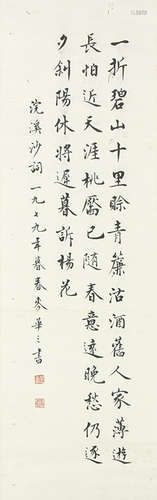 一折碧山十里賒青簾沽酒舊人家薄遊
長怕近天涯桃靨已隨春意遠晚愁仍逐
夕斜陽休將遲暮訴楊花
浣溪沙詞一九七九年暮春麥華三書